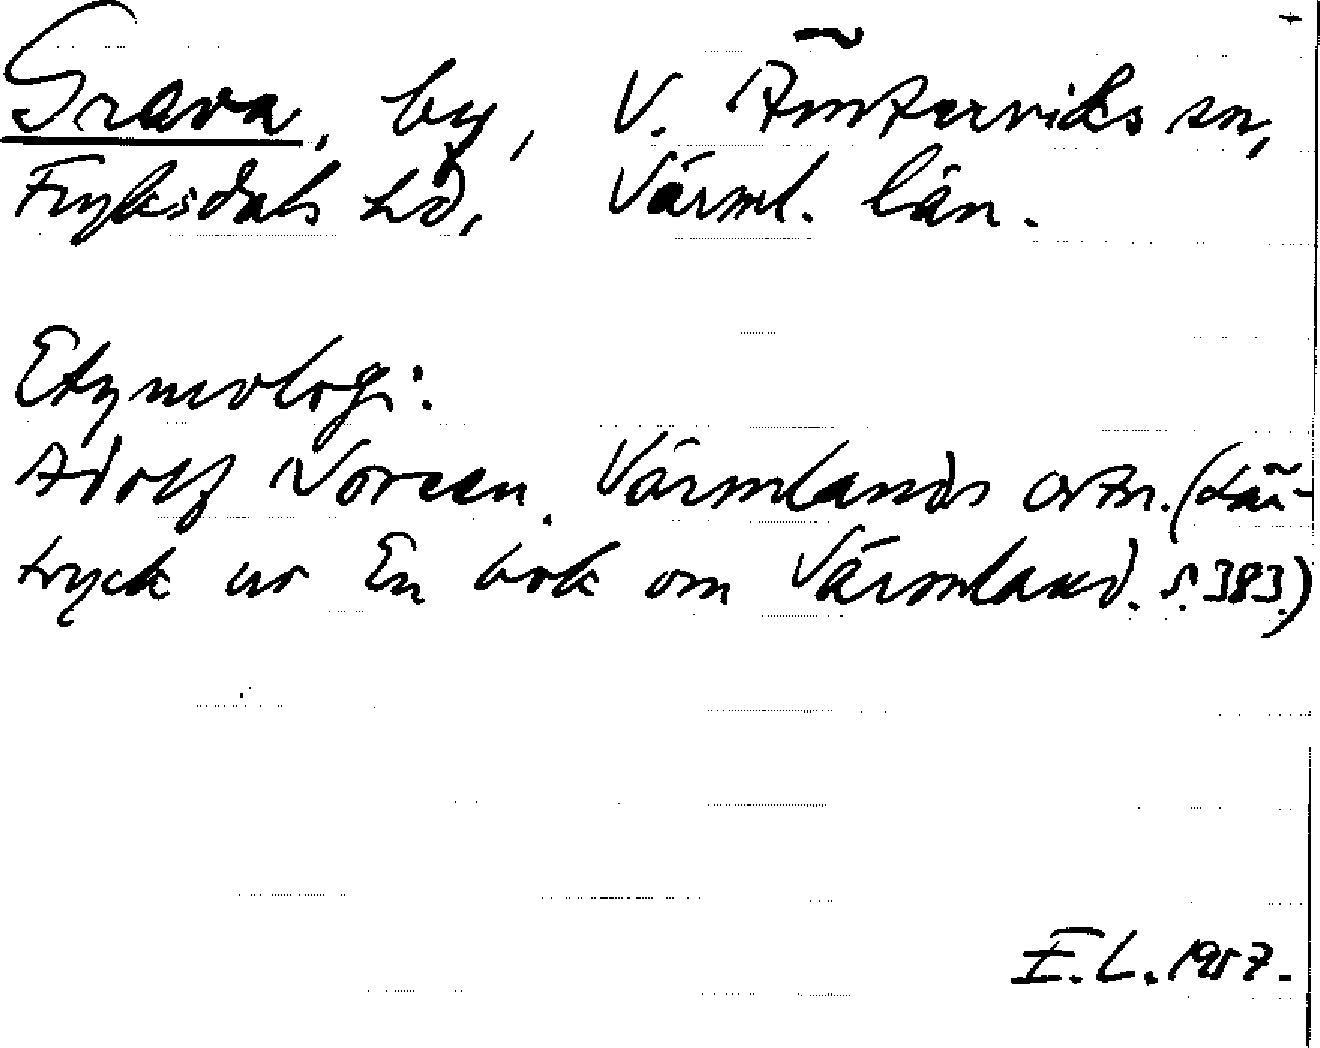 Grava, by, V. Ämterviks sn,
Fryksdals hd, Värml. län.
Etymologi:
Adolf Noreen. Värmlands ortn. (Sär-
tryck ur En bok om Värmland. s. 383.)
E.L. 1957.